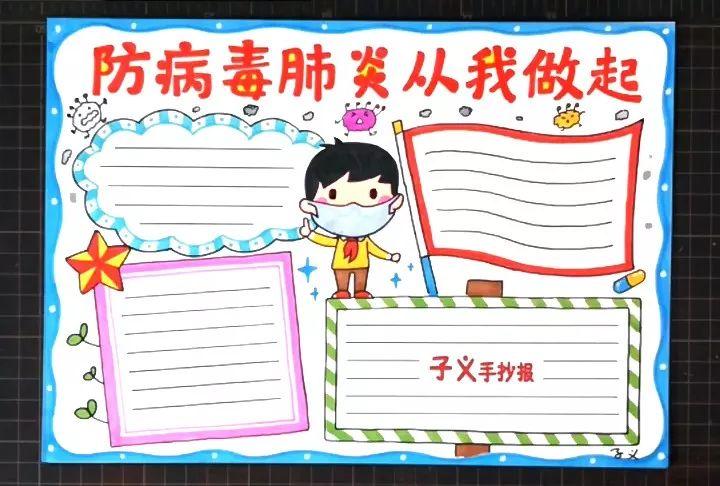 防病毒肺炎从我做起
子义手抄报
子义